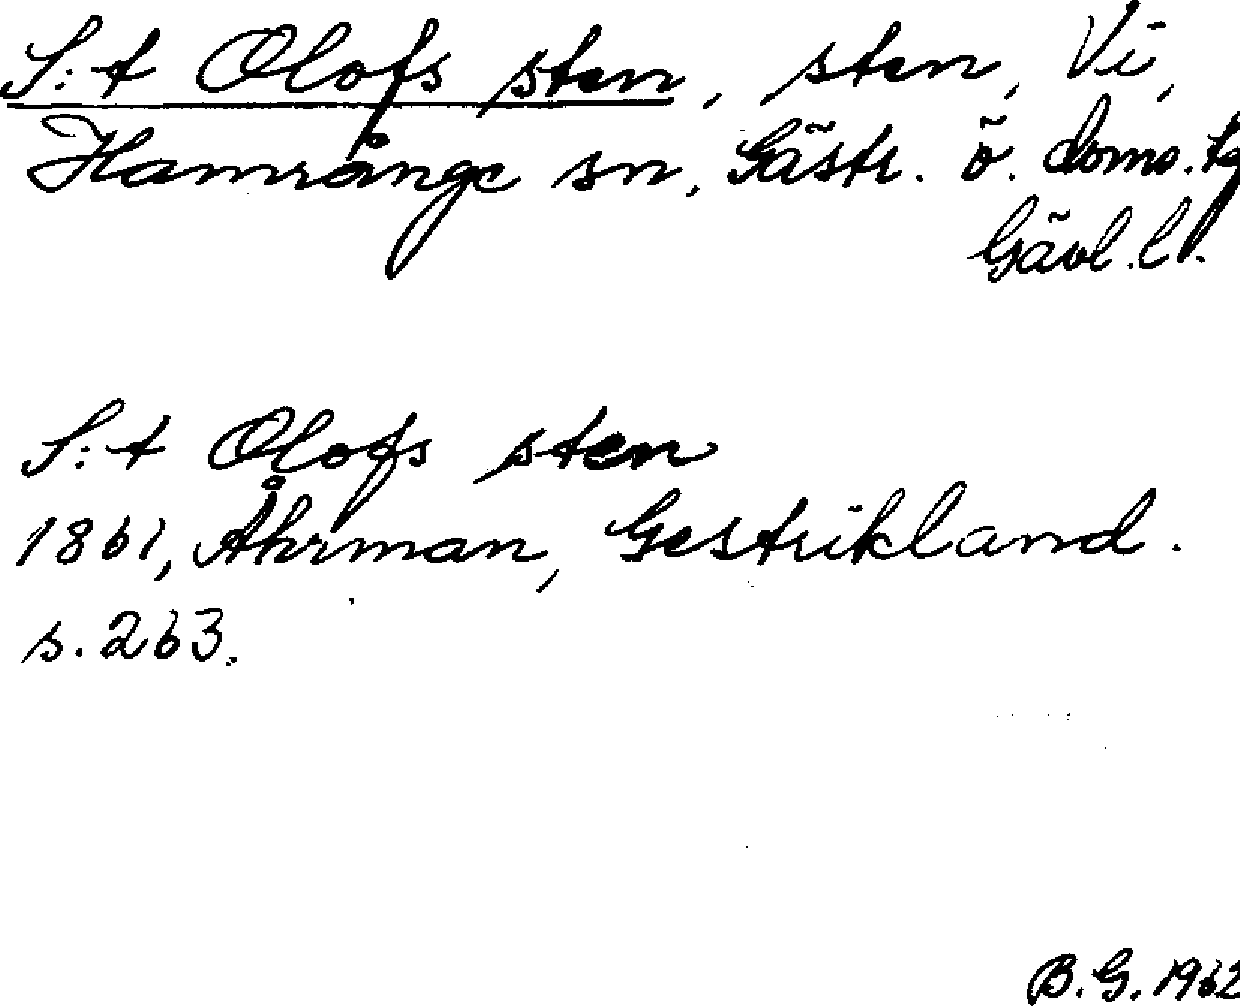 S:t Olofs sten, sten, Vi,
Hamrånge sn, Gästr. ö. doms.tg
Gävl. l.
S:t Olofs sten
1861, Åhrman, Gestrikland.
s. 263.
B.G. 1962